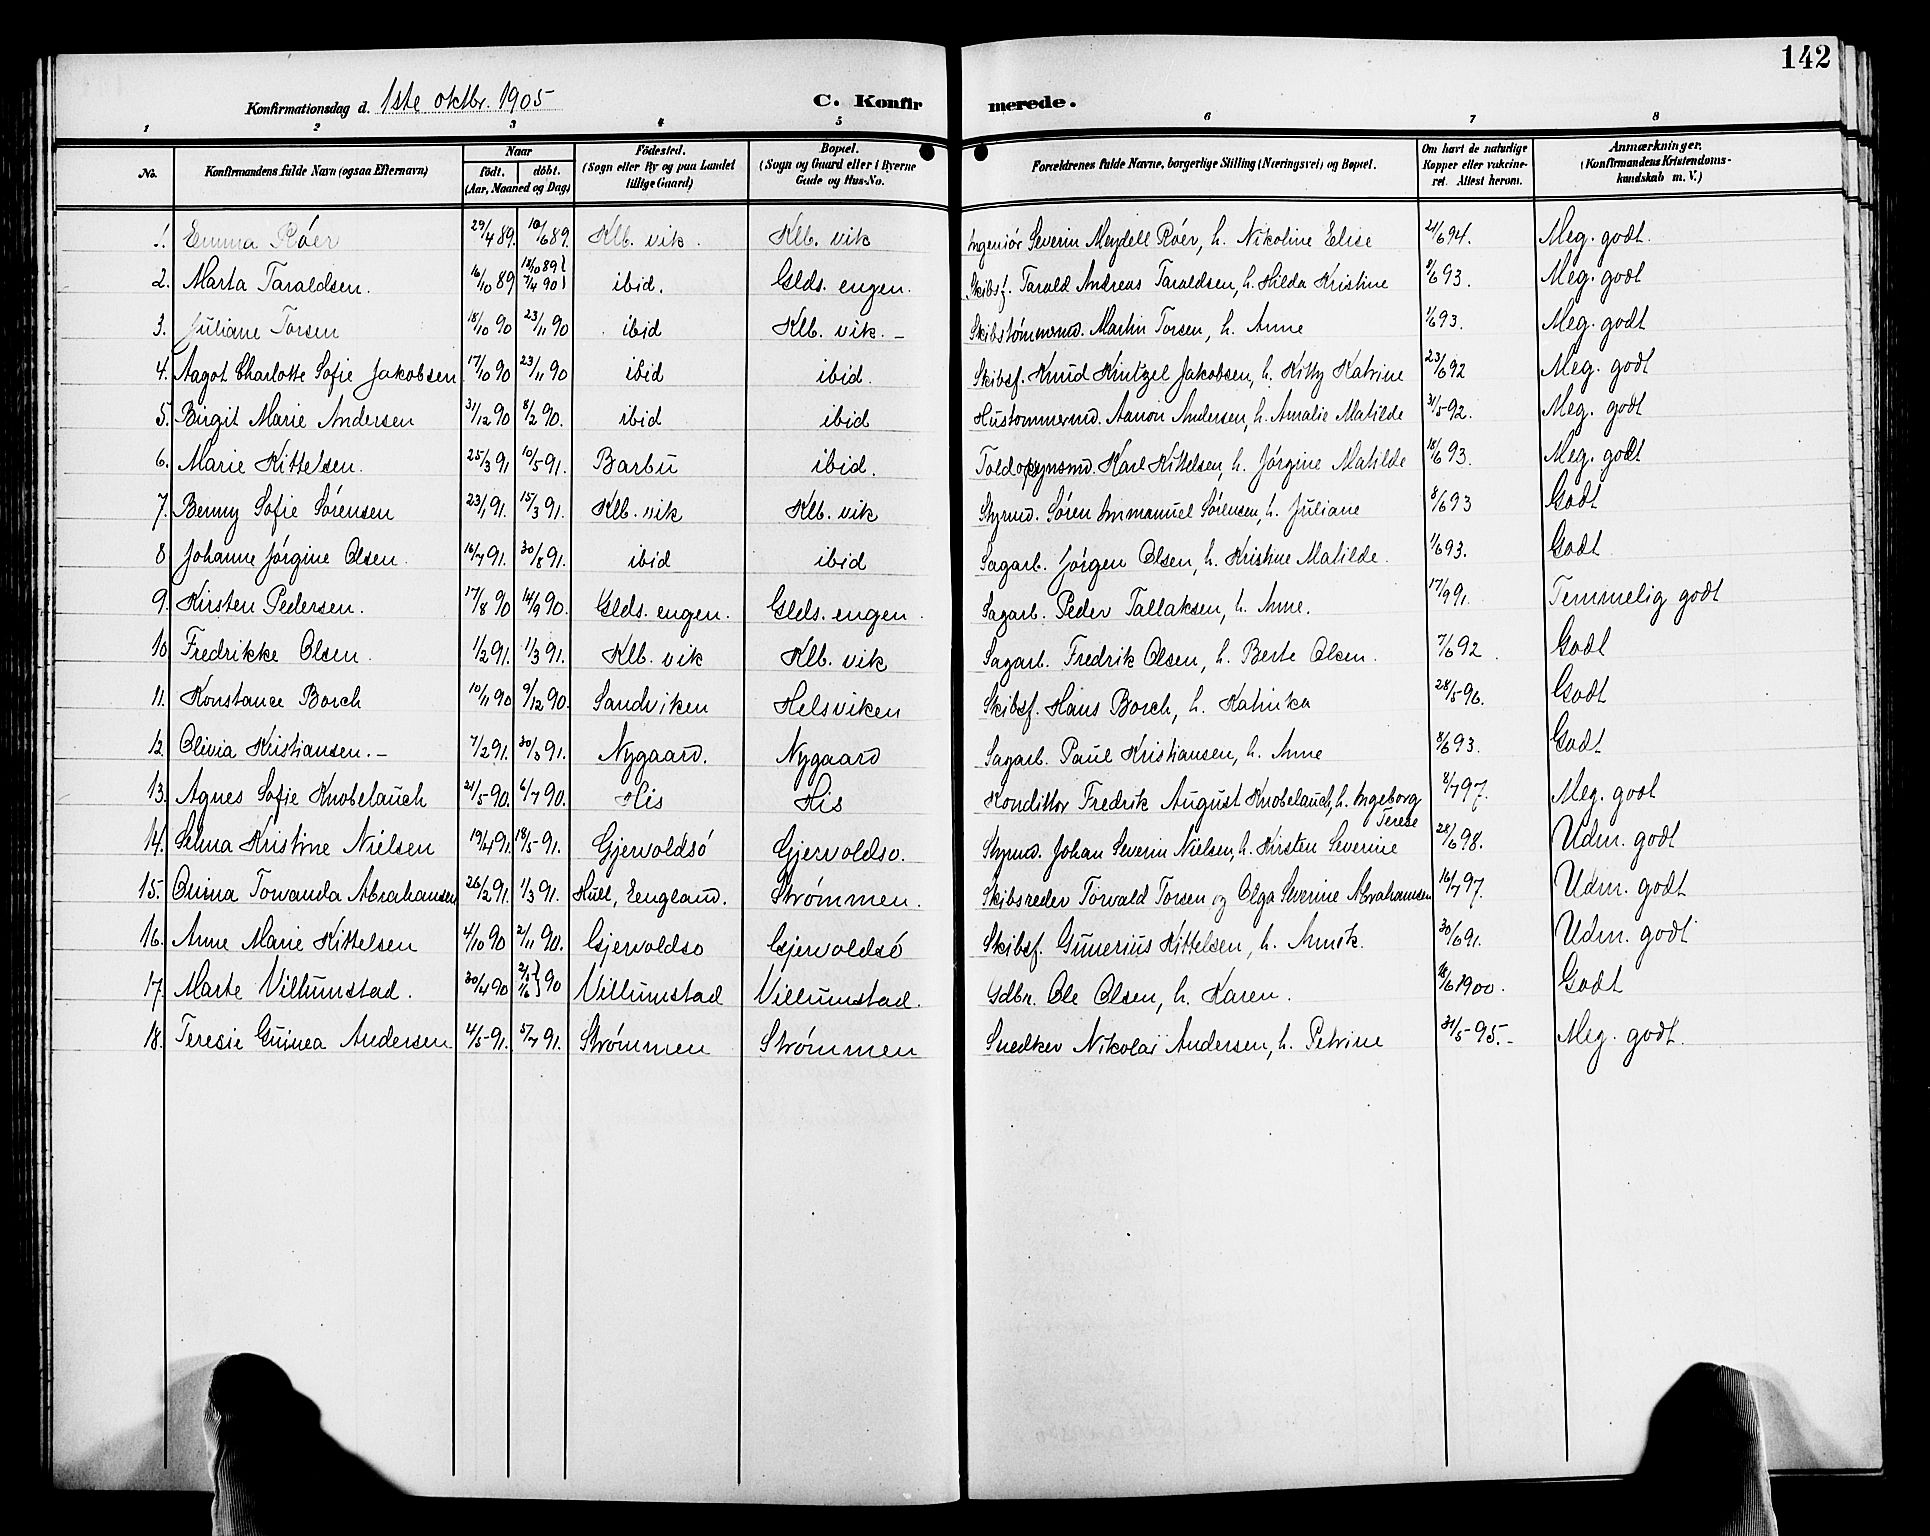 142
Konfirmationsdag d. 1ste oktbr. 1905 C. Konfirmerede.
1 2 3 4 5 6 7 8
No. | Konfirmandens fulde Navn (ogsaa Efternavn) | Naar födt. döbt. (Aar, Maaned og Dag) | Födested. (Sogn eller By og paa Landet tillige Gaard) | Bopæl. (Sogn og Gaard eller i Byerne Gade og Hus-No. | Forældrenes fulde Navne, borgerlige Stilling (Næringsvei) og Bopæl. | Om havt de naturlige Kopper eller vakcineret. Attest herom. | Anmærkninger. (Konfirmandens Kristendomskundskab m. V.)
1. Emma Röer 29/4 89. 10/6 89. Klb. vik. Klb. vik Ingeniör Severin Meydell Röer, h. Nikoline Elise 21/6 94. Meg. godt.
2. Marta Taraldsen. 16/10 89 18/10 89 7/4 90 ibid. Glds. engen. Skibsf. Tarald Andreas Taraldsen, h. Hilda Kristine 8/6 93. Meg. godt
3. Juliane Torsen 18/10 90 23/11 90 ibid Klb. vik. – Skibstømmermd. Martin Torsen, h. Anne 1/6 93. Meg. godt
4. Aagot Charlotte Sofie Jakobsen 17/10 90 23/11 90 ibid ibid. Skibsf. Knud Kintzel Jakobsen, h. Kitty Katrine 23/6 92 Meg. godt
5. Birgit Marie Andersen 31/12 90 8/2 90. ibid ibid Hustommermd. Aanon Andersen, h. Amalie Matilde 31/5 92. Meg. godt
6. Marie Kittelsen. 25/3 91 10/5 91. Barbu ibid. Toldopsynsmd. Karl Kittelsen, h. Jörgine Matilde 18/6 93. Meg. godt
7. Benny Sofie Sörensen 23/1 91. 15/3 91. Klb. vik Klb. vik Styrmd. Søren Immanuel Sørensen, h. Juliane 8/6 93 Godt
8 Johanne Jörgine Olsen. 16/7 91. 30/8 91. ibid ibid Sagarb. Jörgen Olsen, h. Kristine Matilde. 1/6 93. Godt
9. Kirsten Pedersen. 17/8 90 14/9 90. Glds. engen. Glds. engen. Sagarb. Peder Tallaksen, h. Anne. 17/9 91. Temmelig godt
10 Fredrikke Olsen. 1/2 91. 1/3 91. Klb. vik Klb. vik Sagarb. Fredrik Olsen, h. Berte Olsen. 7/6 92. Godt
11. Konstance Borch 10/11 90 9/12 90. Sandviken Helsviken Skibsf. Hans Borch, h. Katinka 28/5 96. Godt
12. Olivia Kristiansen. – 7/2 91. 30/3 91. Nygaard. Nygaard Sagarb. Paul Kristiansen, h. Anne 8/6 93. Godt
13. Agnes Sofie Knobelauch 21/5 90. 6/7 90. His His Konditor Fredrik August Knobelauch, h. Ingeborg Terese 8/7 97. Meg. godt
14. Selma Kristine Nielsen 19/4 91. 18/5 91. Gjervoldsö Gjervoldso. Styrmd. Johan Severin Nielsen, h. Kirsten Severine 28/6 98. Udm. godt
15. Onina Towanda Abrahamsen 26/2 91. 1/3 91. Hull, England. Strømmen. Skibsreder Torvald Torsen og Olga Severine Abrahamsen 16/7 97. Udm. godt
16. Anne Marie Kittelsen 4/10 90 2/11 90. Gjervoldso Gjervoldsö Skibsf. Gunerius Kittelsen, h. Annik. 30/6 91. Udm. godt
17. Marte Villumstad. 30/4 90 2/5 1/6 90 Villumstad Villumstad. Gdbr. Ole Olsen, h. Karen. 18/6 1900. Godt
18. Teresie Guinea Andersen 4/5 91. 5/7 91. Strømmen Strømmen Snedker Nikolai Andersen, h. Petrine 31/5 95. – Meg. godt.